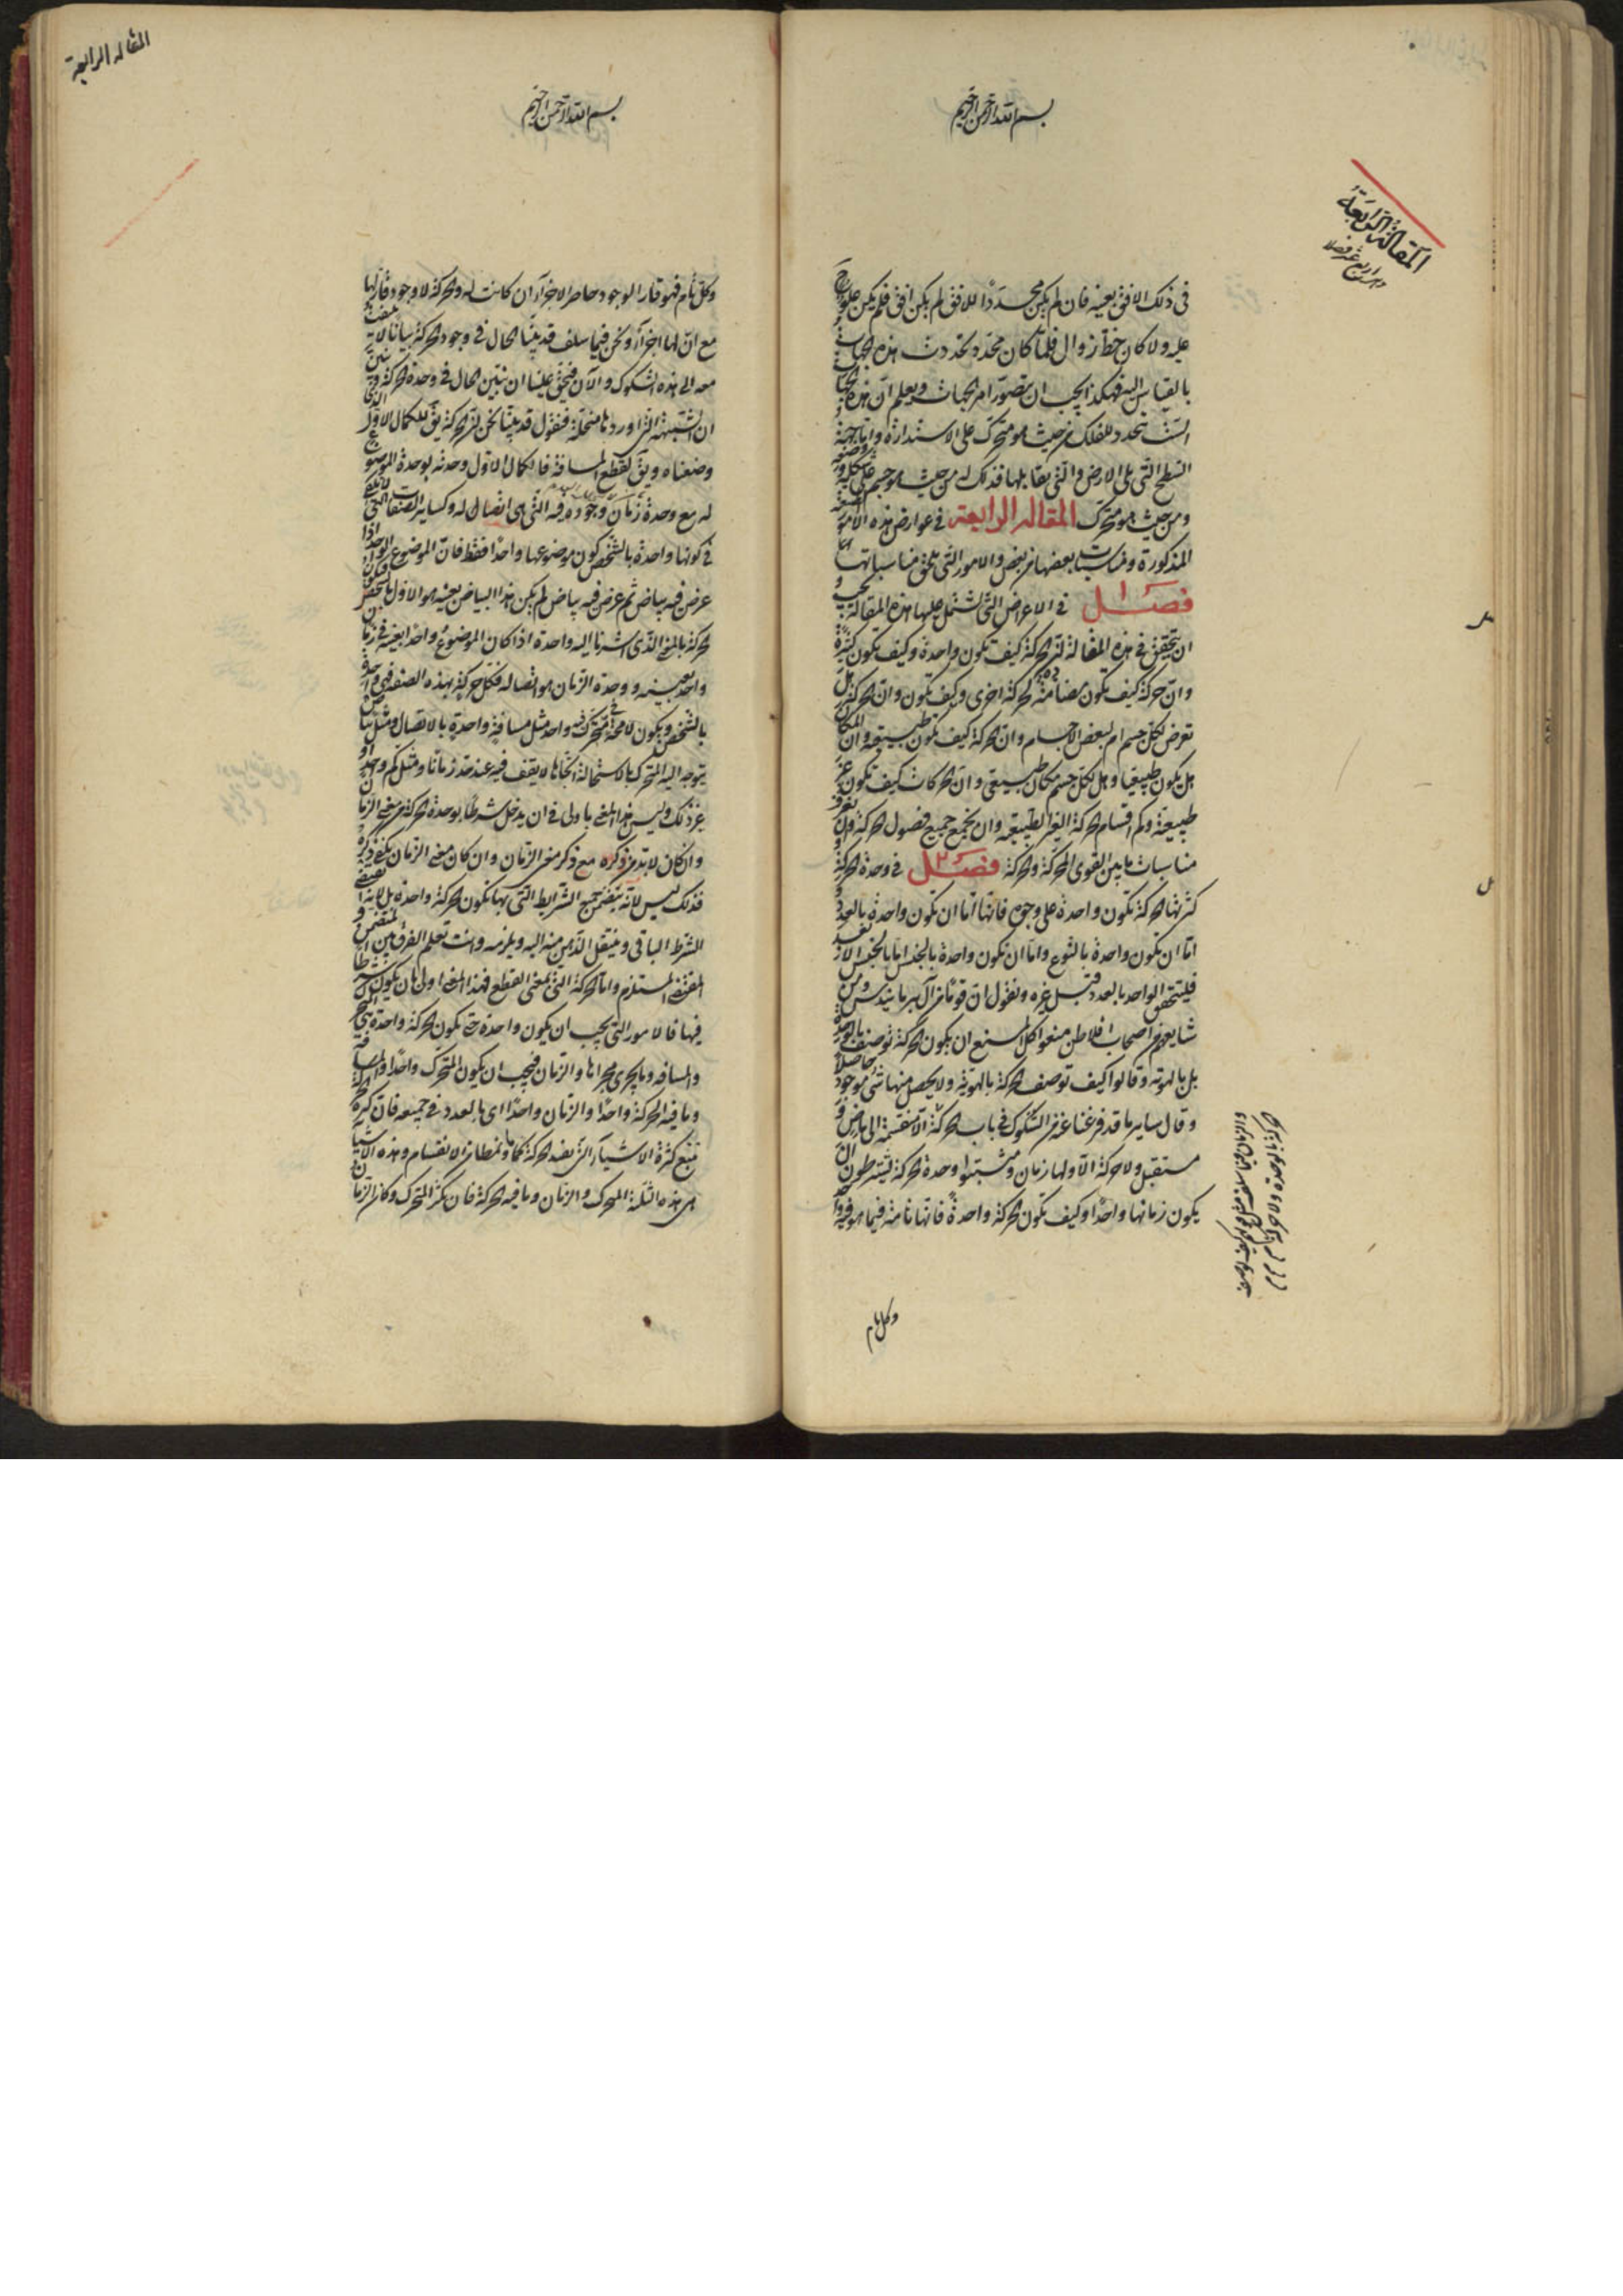 بسم الله الرحمن الرحيم
المقالة الرابعة
وهى اربعة عشر فصلا
فى ذلك الافق بعينه فان لم يكن محددا للافق لم يكن افق فلم يكن
عليه ولا كان خط زوال فلما كان محدد تحددت هذه الجهات
بالقياس اليه فهكذا يجب ان يتصور امر الجهات ويعلم ان هذه الجهات
الست تتحدد للفلك من حيث هو متحرك على الاستدارة واما جهة
السطح التى تلى الارض والتى يقابلها فذلك له من حيث هو جسم على شكله
ومن حيث هو متحرك المقاله الرابعة فى عوارض هذه الامور
المذكورة ومناسبات بعضها من بعض والامور التى تلحق مناسباتها
فصل ا فى الاعراض التى تشتمل عليها هذه المقالة يجب
ان نتحقق فى هذه المقالة ان الحركة كيف تكون واحدة وكيف تكون كثيرة
وان حركة كيف تكون مضامة لحركة اخرى وكيف تكون وان الحركة هل
تعرض لكل جسم ام لبعض الاجسام وان الحركة كيف تكون طبيعية وان المكان
هل يكون طبيعيا وهل لكل جسم مكان طبيعى وان الحركات كيف تكون غير
طبيعية وكم اقسام الحركة الغير الطبيعية وان نجمع جميع فصول الحركة وان نعرف
مناسبات ما بين القوى المحركة والحركة فصل ٢ فى وحدة الحركة
كثرتها الحركة تكون واحدة على وجوه فانها اما ان تكون واحدة بالعدد
اما ان تكون واحدة بالنوع واما ان تكون واحدة بالجنس اما بالجنس
فليتحقق الواحد بالعدد قبل غيره ونقول ان قوما من آل برمانيدس ومن
شايعهم من اصحاب افلاطن منعوا كل المنع ان يكون الحركة توصف بالوحدة
بل بالهوية وقالوا كيف توصف الحركة بالهوية ولا يحصل منها شى موجود حاصلا
وقال ساير ما قد فرغنا عنه من الشكوك فى باب الحركة الا منقسمة الى ماض
مستقبل ولا حركة الا ولها زمان ومثبتوا وحدة الحركة يشترطون ان
يكون زمانها واحدا وكيف تكون الحركة واحدة فانها تامة فيما هو فيه
وكل تام
المقاله الرابعة
بسم الله الرحمن الرحيم
وكل تام فهو قار الوجود حاصر الاجزاء ان كانت له والحركة لا وجود قار لها
مع ان لها اجزاء ونحن فيما سلف قد بينا الحال فى وجود الحركة بيانا لا يلتفت
معه الى هذه الشكوك والآن فيحق علينا ان نبين الحال فى وحدة الحركة
ان الشبهة التى اوردناها منحلة فنقول قد بينا نحن ان الحركة يق للكمال الاول الذى
وصفناه ويق لقطع المسافة فالكمال الاول وحدته بوحدة الموضوع
له مع وحدة زمان وجوده فيه التى هى اتصال له وكساير الصفات التى لا يكفى
فى كونها واحدة بالشخص كون موضوعها واحدا فقط فان الموضوع الواحد اذا
عرض فيه بياض ثم عرض فيه بياض لم يكن هذا البياض بعينه هو الاول
الحركة بالمعنى الذى اشرنا اليه واحدة اذا كان الموضوع واحدا بعينه فى زمان
واحد بعينه ووحدة الزمان هو اتصاله فكل حركة بهذه الصفة فهى واحدة
بالشخص ويكون لا محة متحرك فيه واحد مثل مسافة واحدة بالاتصال ومثل بياض
يتوجه اليه المتحرك بالاستحالة اتجاها لا يقف فيه عند حد زمانا ومثل كم واحد او
غير ذلك وليس هذا المعنى باولى فى ان يدخل شرطا بوحدة الحركة من معنى الزمان
وان كان لا بد من ذكره مع ذكر معنى الزمان وان كان معنى الزمان يكفى ذكره
فذلك ليس لانه يتضمن جميع الشرايط التى بها تكون الحركة واحدة بل لانه يقتضى
الشرط الباقى وينتقل الذهن منه اليه ويلزمه وانت تعلم الفرق بين المتضمن و
المقتضى المستلزم واما الحركة التى بمعنى القطع فهذا المعنى اولى بان يكون شرطا
فيها فالامور التى يجب ان يكون واحدة حتى تكون الحركة واحدة هى المتحرك
والمسافه وما يجرى مجراها والزمان فيجب ان يكون المتحرك واحدا والمسافة
وما فيه الحركة واحدا والزمان واحدا اى بالعدد فى جميعه فان كثرة الحركة
تتبع كثرة الاشياء التى بعد الحركة كما من الانقسام وهذه الاشياء
هى هذه الثلثة المتحرك والزمان وما فيه الحركة فان كثر المتحرك وكان الزمان